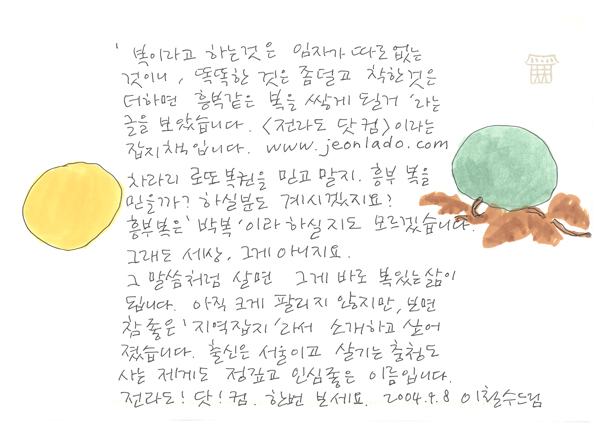 ' 복이라고 하는것은 임자가 따로없는
것이니, 똑똑한 것은 좀덜고 착한것은
더하면 흥복같은 복을 쌓게 될거 '라는
글을 보았습니다. <전라도 닷컴>이라는
잡지책입니다. www.jeonlado.com
차라리 로또복권을 믿고 말지. 흥부 복을
믿을까? 하실분도 계시겠지요?
흥부복은 '박복' 이라 하실지도 모르겠습니다.
그래도 세상, 그게아니지요.
그 말씀처럼 살면 그게 바로 복있는삶이
됩니다. 아직 크게 팔리지 않지만, 보면
참좋은 '지역잡지 '라서 소개하고 싶어
졌습니다. 출신은 서울이고 살기는 충청도
사는 제게도 정깊고 인심좋은 이름입니다.
전라도! 닷! 컴. 한번 보세요. 2004.9.8 이철수드림